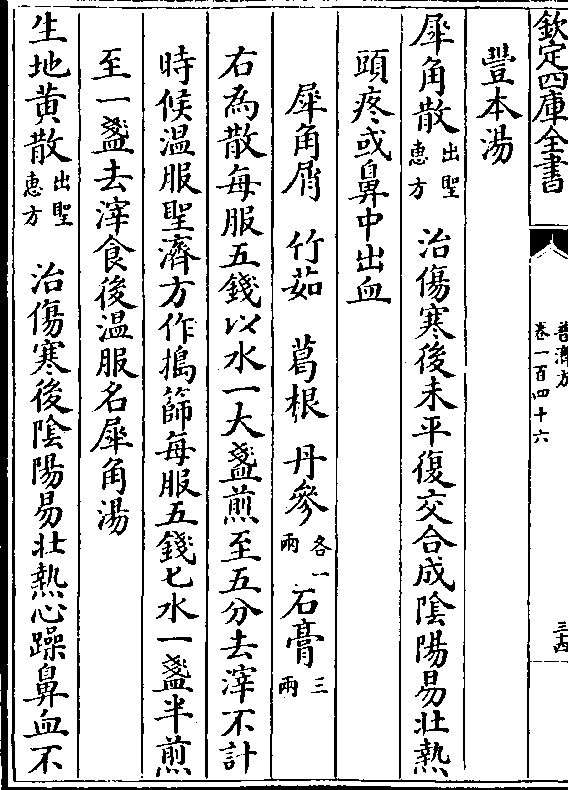 欽定四庫全書
普濟方
卷一百四十六
三西
豐本湯
犀角散出聖惠方 治傷寒後未平復交合成陰陽易壯熱
頭疼或鼻中出血
犀角屑 竹茹 葛根 丹參各一兩 石膏三兩
右為散每服五錢以水一大盞煎至五分去滓不計
時候溫服聖濟方作搗篩每服五錢七水一盞半煎
至一盞去滓食後溫服名犀角湯
生地黄散出聖惠方 治傷寒後陰陽易壯熱心躁鼻血不